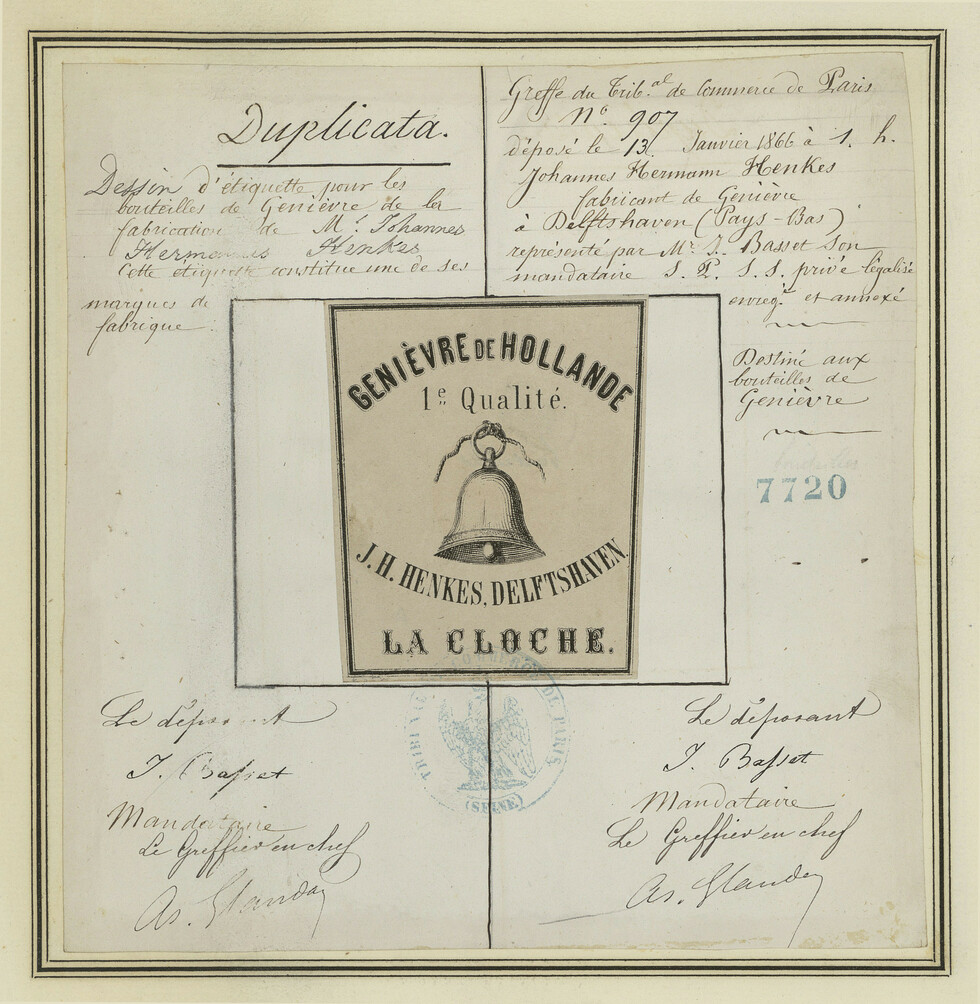 Duplicata.
Dessin d'étiquette pour les
bouteilles de Genièvre de la
fabrication de Mr. Johannes
Hermannus Henkes
Cette étiquette constitue une de ses
marques de
fabrique.
Greffe du Trib.al de Commerce de Paris
No. 907
déposé le 13 Janvier 1866 à 1. h.
Johannes Hermann Henkes
fabricant de Genièvre
à Delftshaven (Pays-Bas)
représenté par Mr. J. Basset son
mandataire S. P. S. S. privé légalisé
enreg.é et annexé
Destiné aux
bouteilles de
Genièvre
bouteilles
7720
GENIÈVRE DE HOLLANDE
1e Qualité.
J. H. HENKES, DELFTSHAVEN.
LA CLOCHE.
TRIBUNAL DE COMMERCE DE PARIS
(SEINE)
Le déposant
J. Basset
Mandataire
Le Greffier en chef
Le déposant
J. Basset
Mandataire
Le Greffier en chef